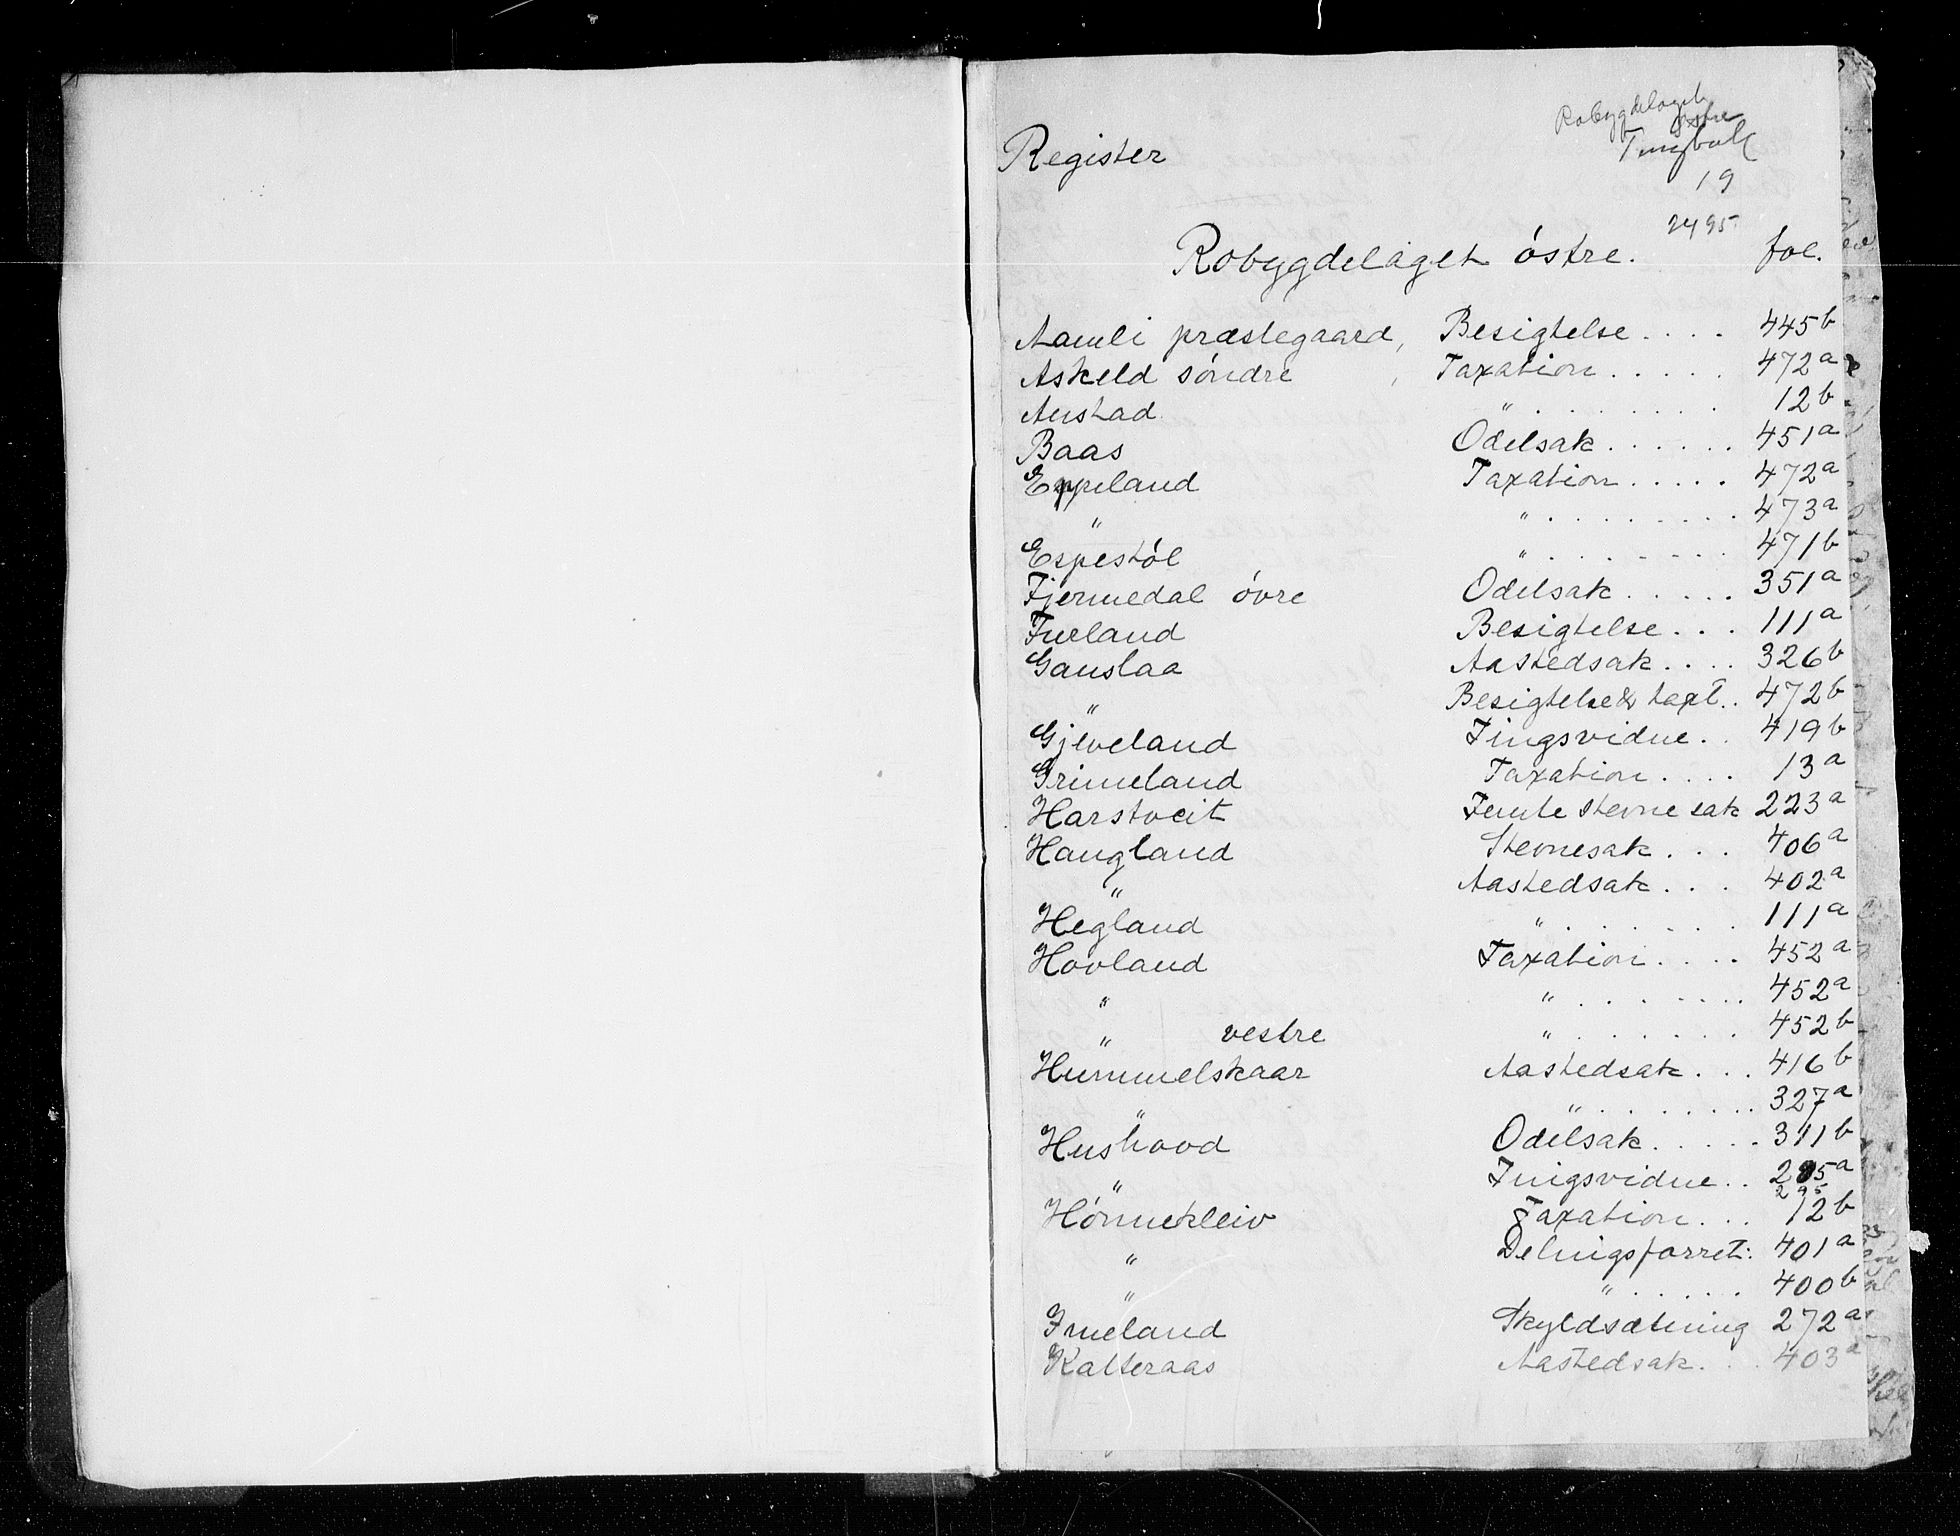 Robygdelaget
østre
Tingbok
19
2495
Register
Robygdelaget östre. fol.
Aamli præstegaard, Besigtelse .... 445b
Askeld söndre , Taxation ..... 472a
Austad " ........ 12b
Baas Odelsak ...... 451a
Eppeland Taxation ..... 472a
" " ......... 473a
Espestöl " ........ 471b
Fjermedal övre Odelsak ...... 351a
Fueland Besigtelse ... 111a
Gauslaa Aastedsak .... 326b
" Besigtelse & taxt .. 472b
Gjeveland Tingsvidne .. 419b
Grimeland Taxation .... 13a
Harstveit Femte stevne sak 223a
Haugland Stevnesak ... 406a
" Aastedsak ... 402a
Hegland " ....... 111a
Hovland Taxation .... 452a
" " ....... 452a
" vestre " ....... 452b
Hummelskaar Aastedsak ... 416b
" " ......... 327a
Hushovd Odelsak ..... 311b
" Tingsvidne .. 295a
295
Hönnekleiv Taxation ... 12b
" Delingsforret: 401a
" " ...... 400b
Imeland Skyldsætning 272a
Kalteraas Aastedsak ... 403a